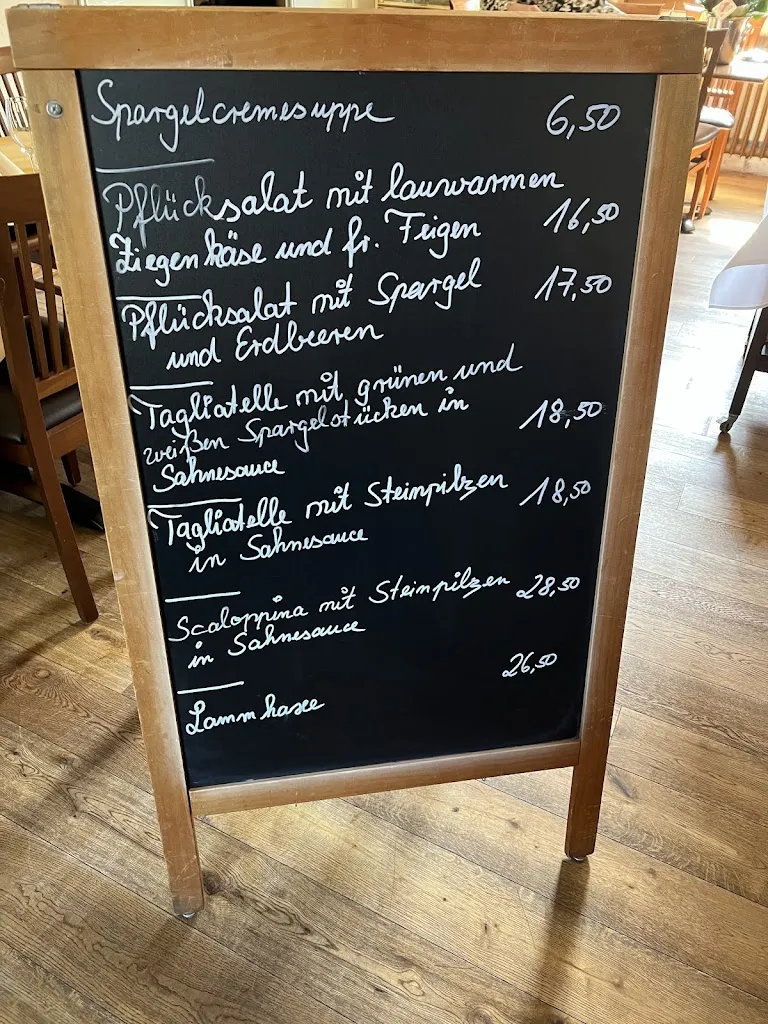 Spargelcremesuppe 6,50
Pflücksalat mit lauwarmen
Ziegenkäse und fr. Feigen 16,50
Pflücksalat mit Spargel 17,50
und Erdbeeren
Tagliatelle mit grünen und
weißen Spargelstücken in 18,50
Sahnesauce
Tagliatelle mit Steinpilzen 18,50
in Sahnesauce
Scaloppina mit Steinpilzen 28,50
in Sahnesauce
26,50
Lammhaxe